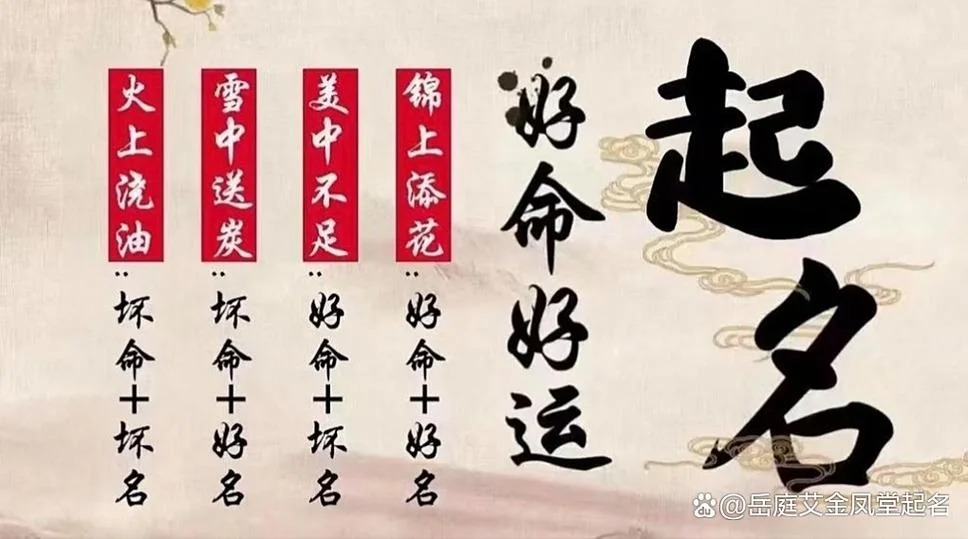 起名
好命好运
锦上添花：好命＋好名
美中不足：好命＋坏名
雪中送炭：坏命＋好名
火上浇油：坏命＋坏名
@岳庭艾金凤堂起名